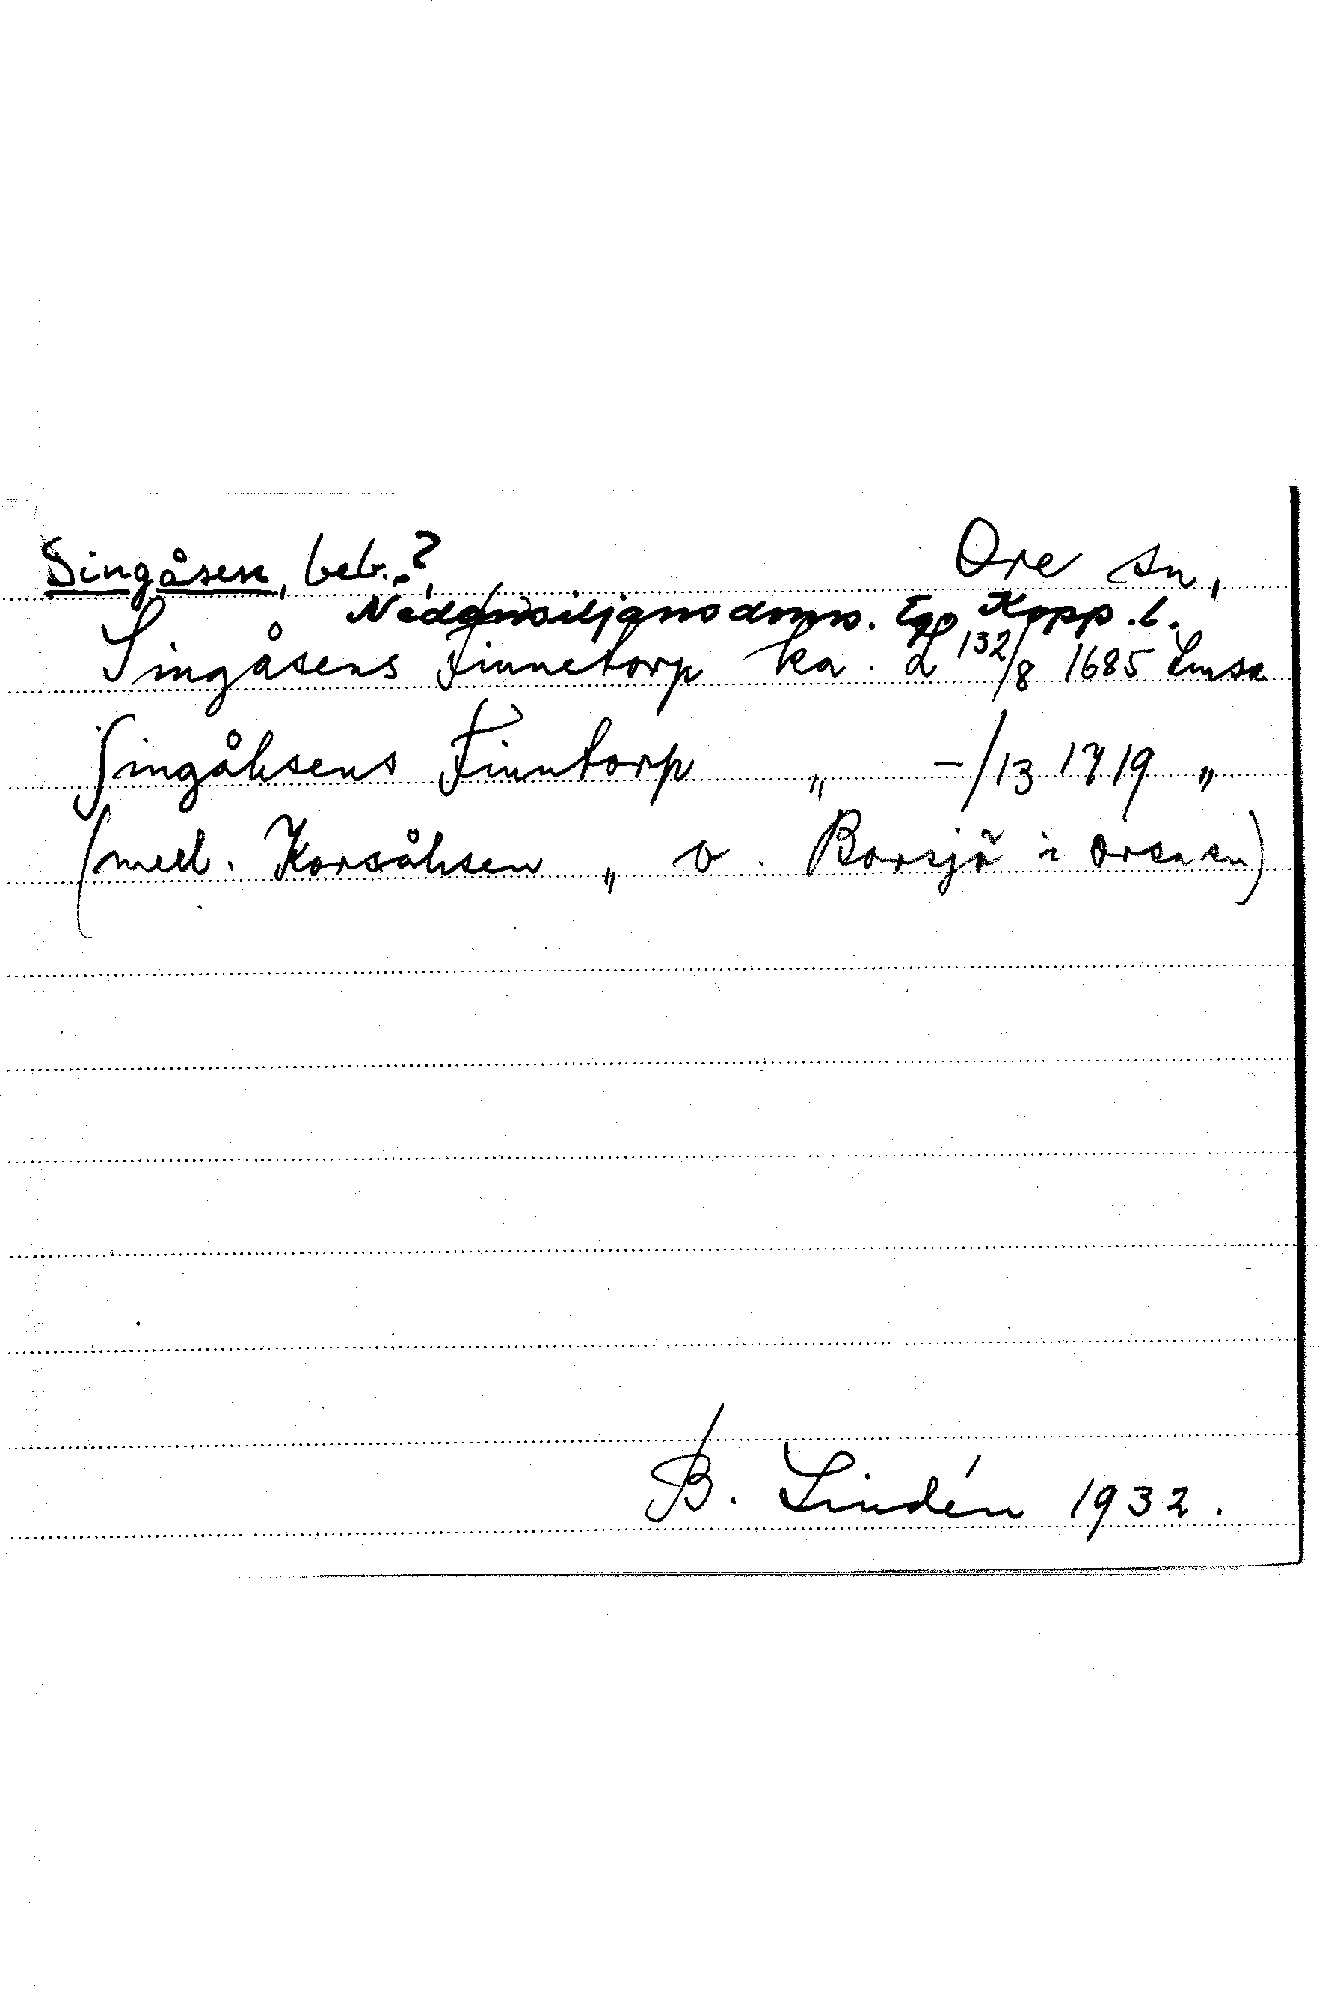 Singåsen, beb.? Ore sn,
Nedansiljans doms. Kopp. l.
Singåsens Finnetorp ka. L 132/8 1685 Lmsa
Singåhsens Finntorp „ –/13 1719 „
(mell. Korsåhsen „ o. Borsjö i Orsa sn)
B. Lindén 1932.